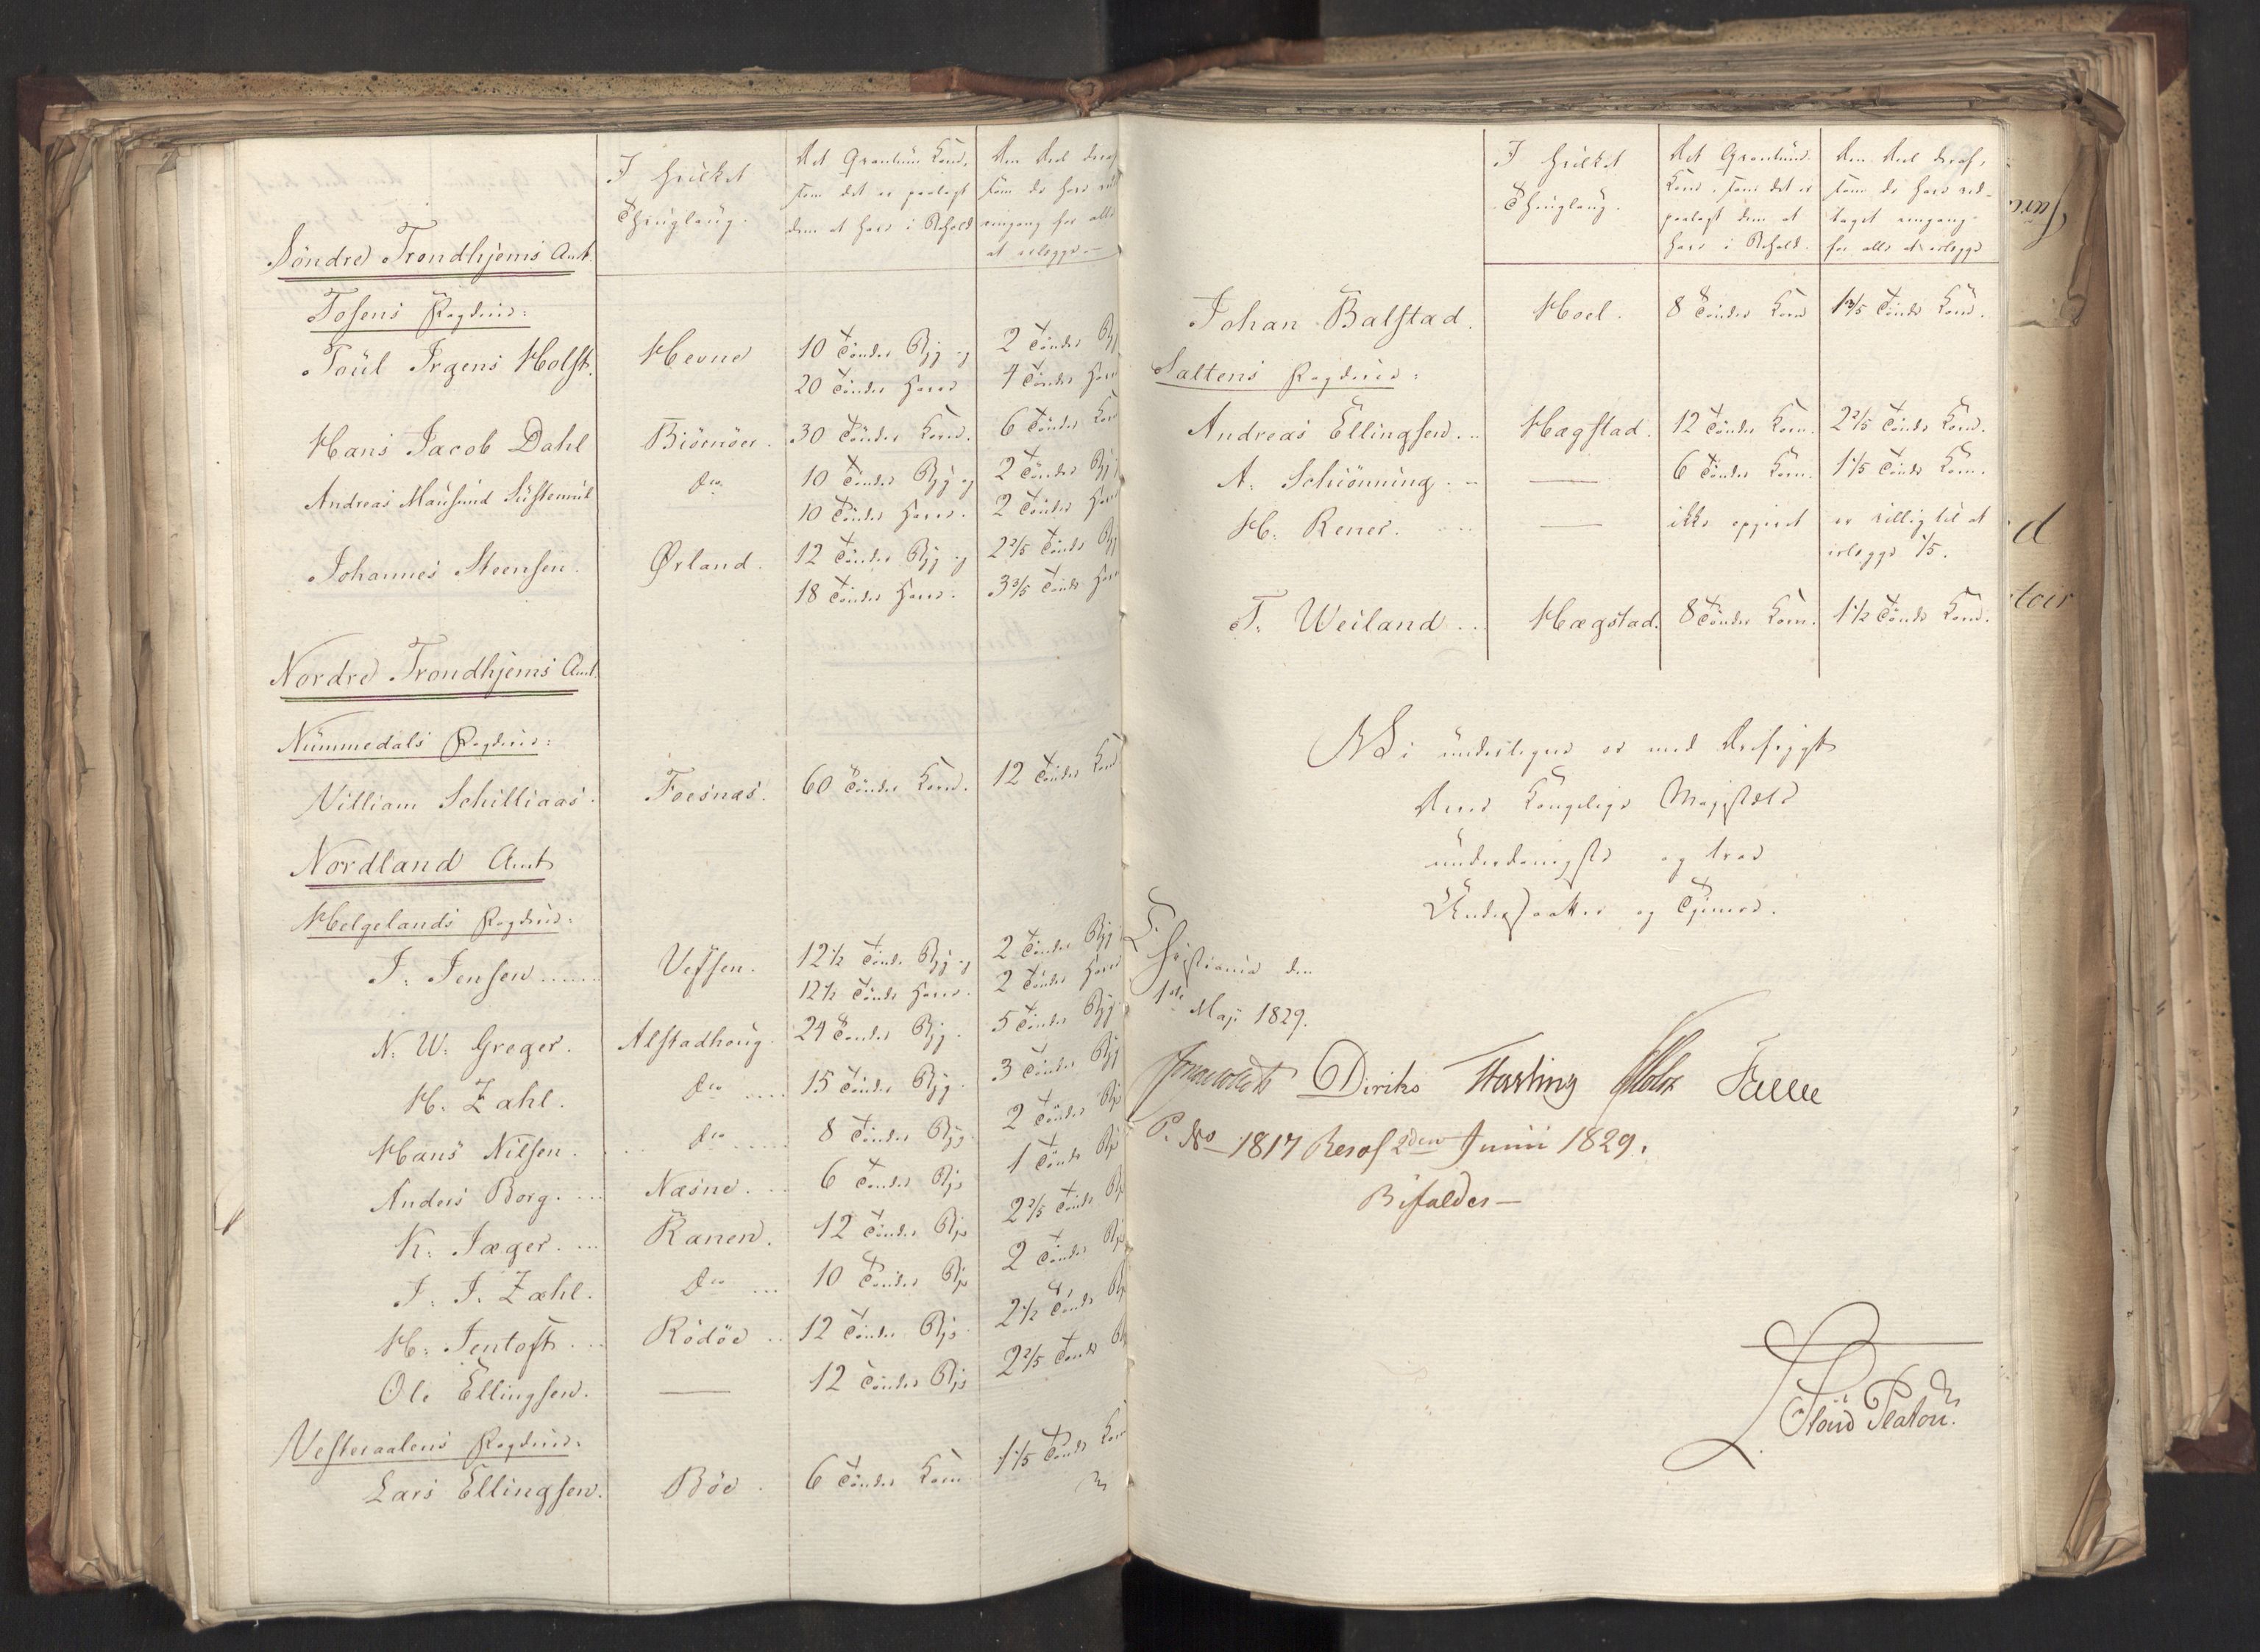 I hvilket
Thinglaug.
Det Qvantum Korn,
som det er paalagt
dem at have i Behold
Den Deel deraf
som de have
eengang for alle
at erlægge
Söndre Trondhjems Amt.
Fosens Fogderie:
Poul Irgens Holst. Hevne 10 Tönder Byg og 2 Tönder Byg
20 Tönder Havre 4 Tönder Havre
Hans Jacob Dahl Biörnöer. 30 Tönder Korn. 6 Tönder Korn
Andreas Mausund do 10 Tönder Byg og 2 Tönder Byg
10 Tönder Havre. 2 Tönder Havre
Johannes Steensen. Ørland. 12 Tönder Byg og 2 2/5 Tönde Byg
18 Tönder Havre. 3 3/5 Tönde Havre
Nordre Trondhjems Amt.
Nummedals Fogderie:
Villiam Schilliaas. Foesnæs. 60 Tönder Korn. 12 Tönder Korn
Nordland Amt
Helgelands Fogderie:
J. Jensen ...... Vefsen. 12 1/2 Tönde Byg og 2 Tönder Byg
12 1/2 Tönde Havre. 2 Tönder Havre
N. W. Greger. Alstadhoug. 24 Tönder Byg. 5 Tönder Byg
H. Zahl. do .... 15 Tönder Byg. 3 Tönder Byg
Hans Nilsen. do .... 8 Tönder Byg. 2 Tönder
Anders Borg. ... Næsne. .. 6 Tönder 1 Tönde
K. Jæger. ... Ranen. 12 Tönder 2 2/5 Tönde
J. J. Zahl. do ... 10 Tönder 2 Tönder
H. Jentoft. .. Rödöe .. 12 Tönder 2 1/2 Tönde
Ole Ellingsen. — 12 Tönder 2 2/5 Tönde
Vesteraalens Fogderie:
Lars Ellingsen. Böe. 6 Tönder Korn 1 1/5 Tönde Korn
I hvilket
Thinglaug.
Det Qvantum
Korn, som det er
paalagt dem at
have i Behold.
Den Deel deraf,
som de have ved-
taget eengang
for alle at erlægge
Johan Balstad. Hoel. 8 Tönder Korn 1 3/5 Tönde Korn.
Saltens Fogderie:
Andreas Ellingsen... Hægstad. 12 Tönder Korn. 2 2/5 Tönde Korn.
A. Schiönning. .. — 6 Tönder Korn. 1 1/5 Tönde Korn.
H. Rener. ... — ikke opgivet er villig til at
erlægge 1/5.
T. Weiland .. Hægstad. 8 Tönder Korn. 1 1/2 Tönde Korn.
Vi undertegne os med
Deres Kongelige Majestæts
underdanigste og troe
Undersaatter og Tjenere.
Christiania den
1ste Maji 1829.
Diriks Fasting Holst
P. No 1817 Resol 2den Junii 1829.
Bifaldes —